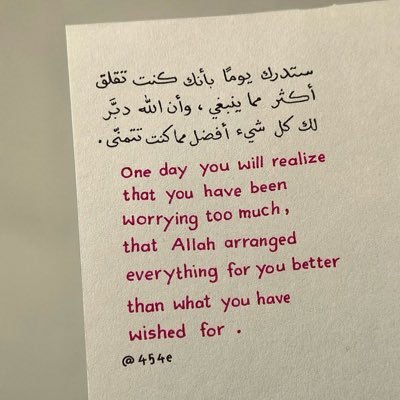 ستدرك يومًا بأنك كنت تقلق
أكثر مما ينبغي ، وأن الله دبَّر
لك كل شيء أفضل مما كنت تتمنّى .
One day you will realize
that you have been
worrying too much,
that Allah arranged
everything for you better
than what you have
wished for .
@454e